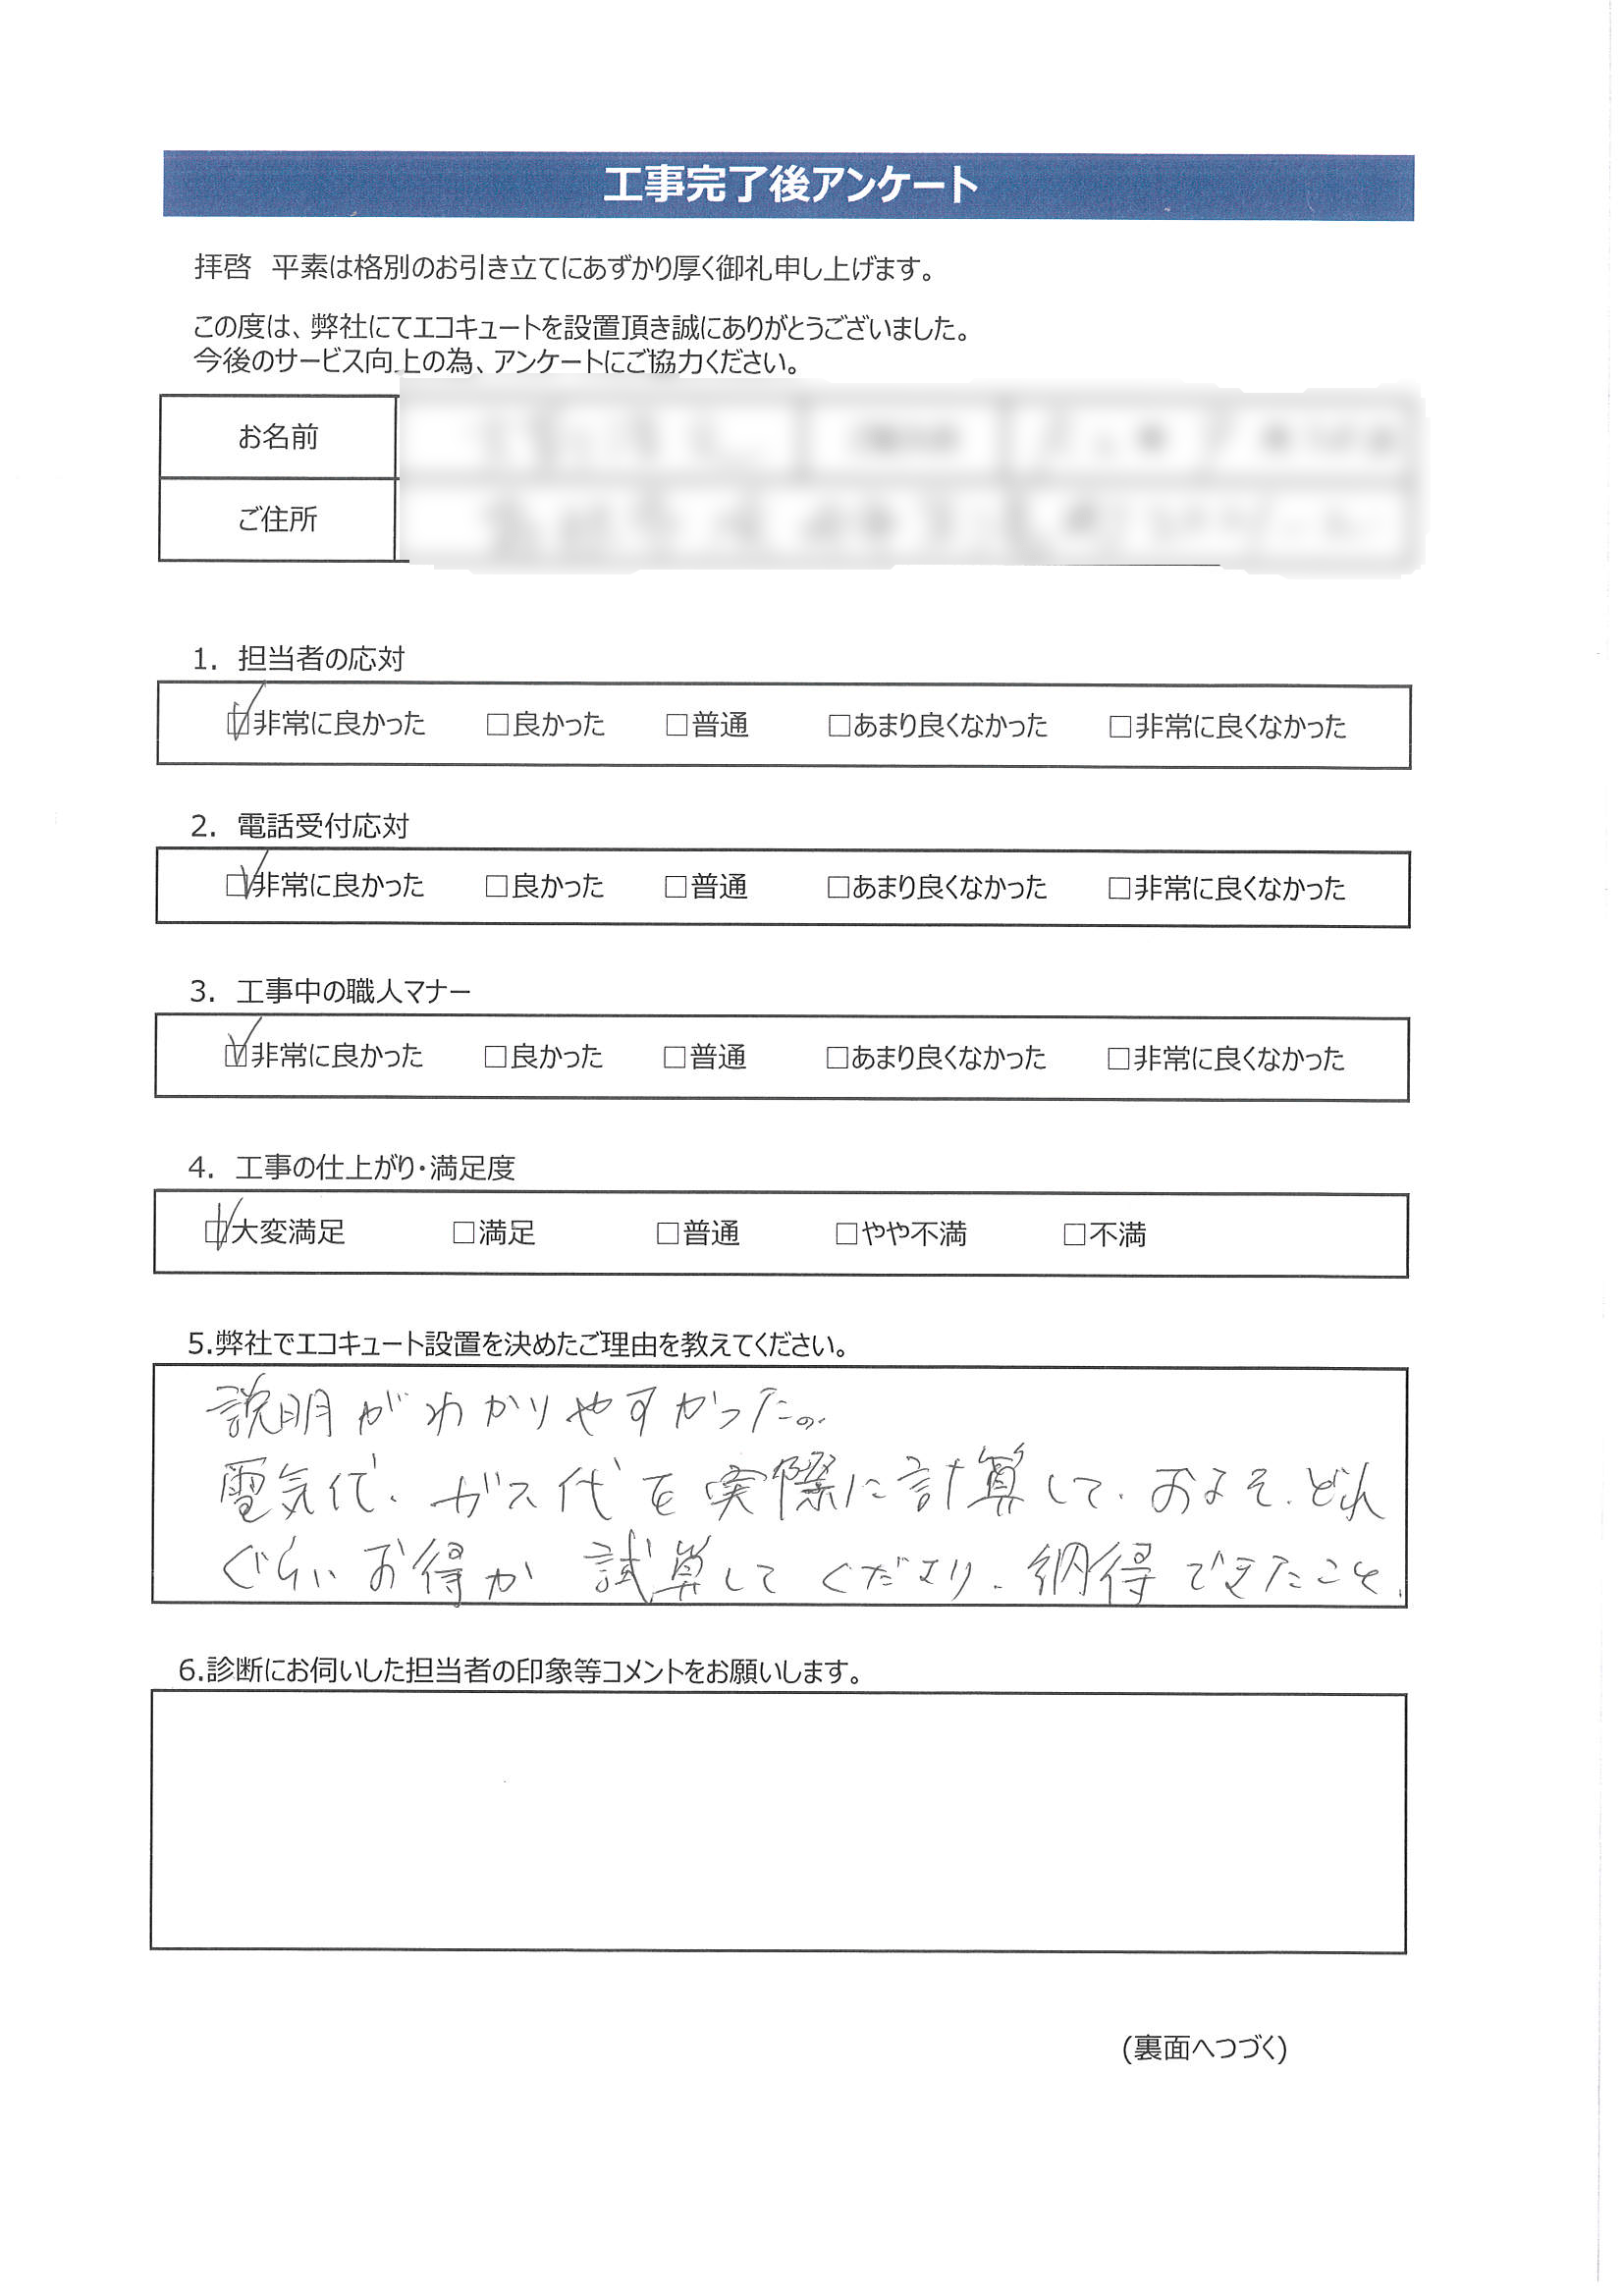 工事完了後アンケート
拝啓　平素は格別のお引き立てにあずかり厚く御礼申し上げます。
この度は、弊社にてエコキュートを設置頂き誠にありがとうございました。
今後のサービス向上の為、アンケートにご協力ください。
お名前
ご住所
1. 担当者の応対
☑非常に良かった　□良かった　□普通　□あまり良くなかった　□非常に良くなかった
2. 電話受付応対
☑非常に良かった　□良かった　□普通　□あまり良くなかった　□非常に良くなかった
3. 工事中の職人マナー
☑非常に良かった　□良かった　□普通　□あまり良くなかった　□非常に良くなかった
4. 工事の仕上がり・満足度
☑大変満足　□満足　□普通　□やや不満　□不満
5.弊社でエコキュート設置を決めたご理由を教えてください。
説明がわかりやすかった。
電気代、ガス代を実際に計算して、およそ、どれ
ぐらいお得か試算してくださり、納得できたこと、
6.診断にお伺いした担当者の印象等コメントをお願いします。
(裏面へつづく)